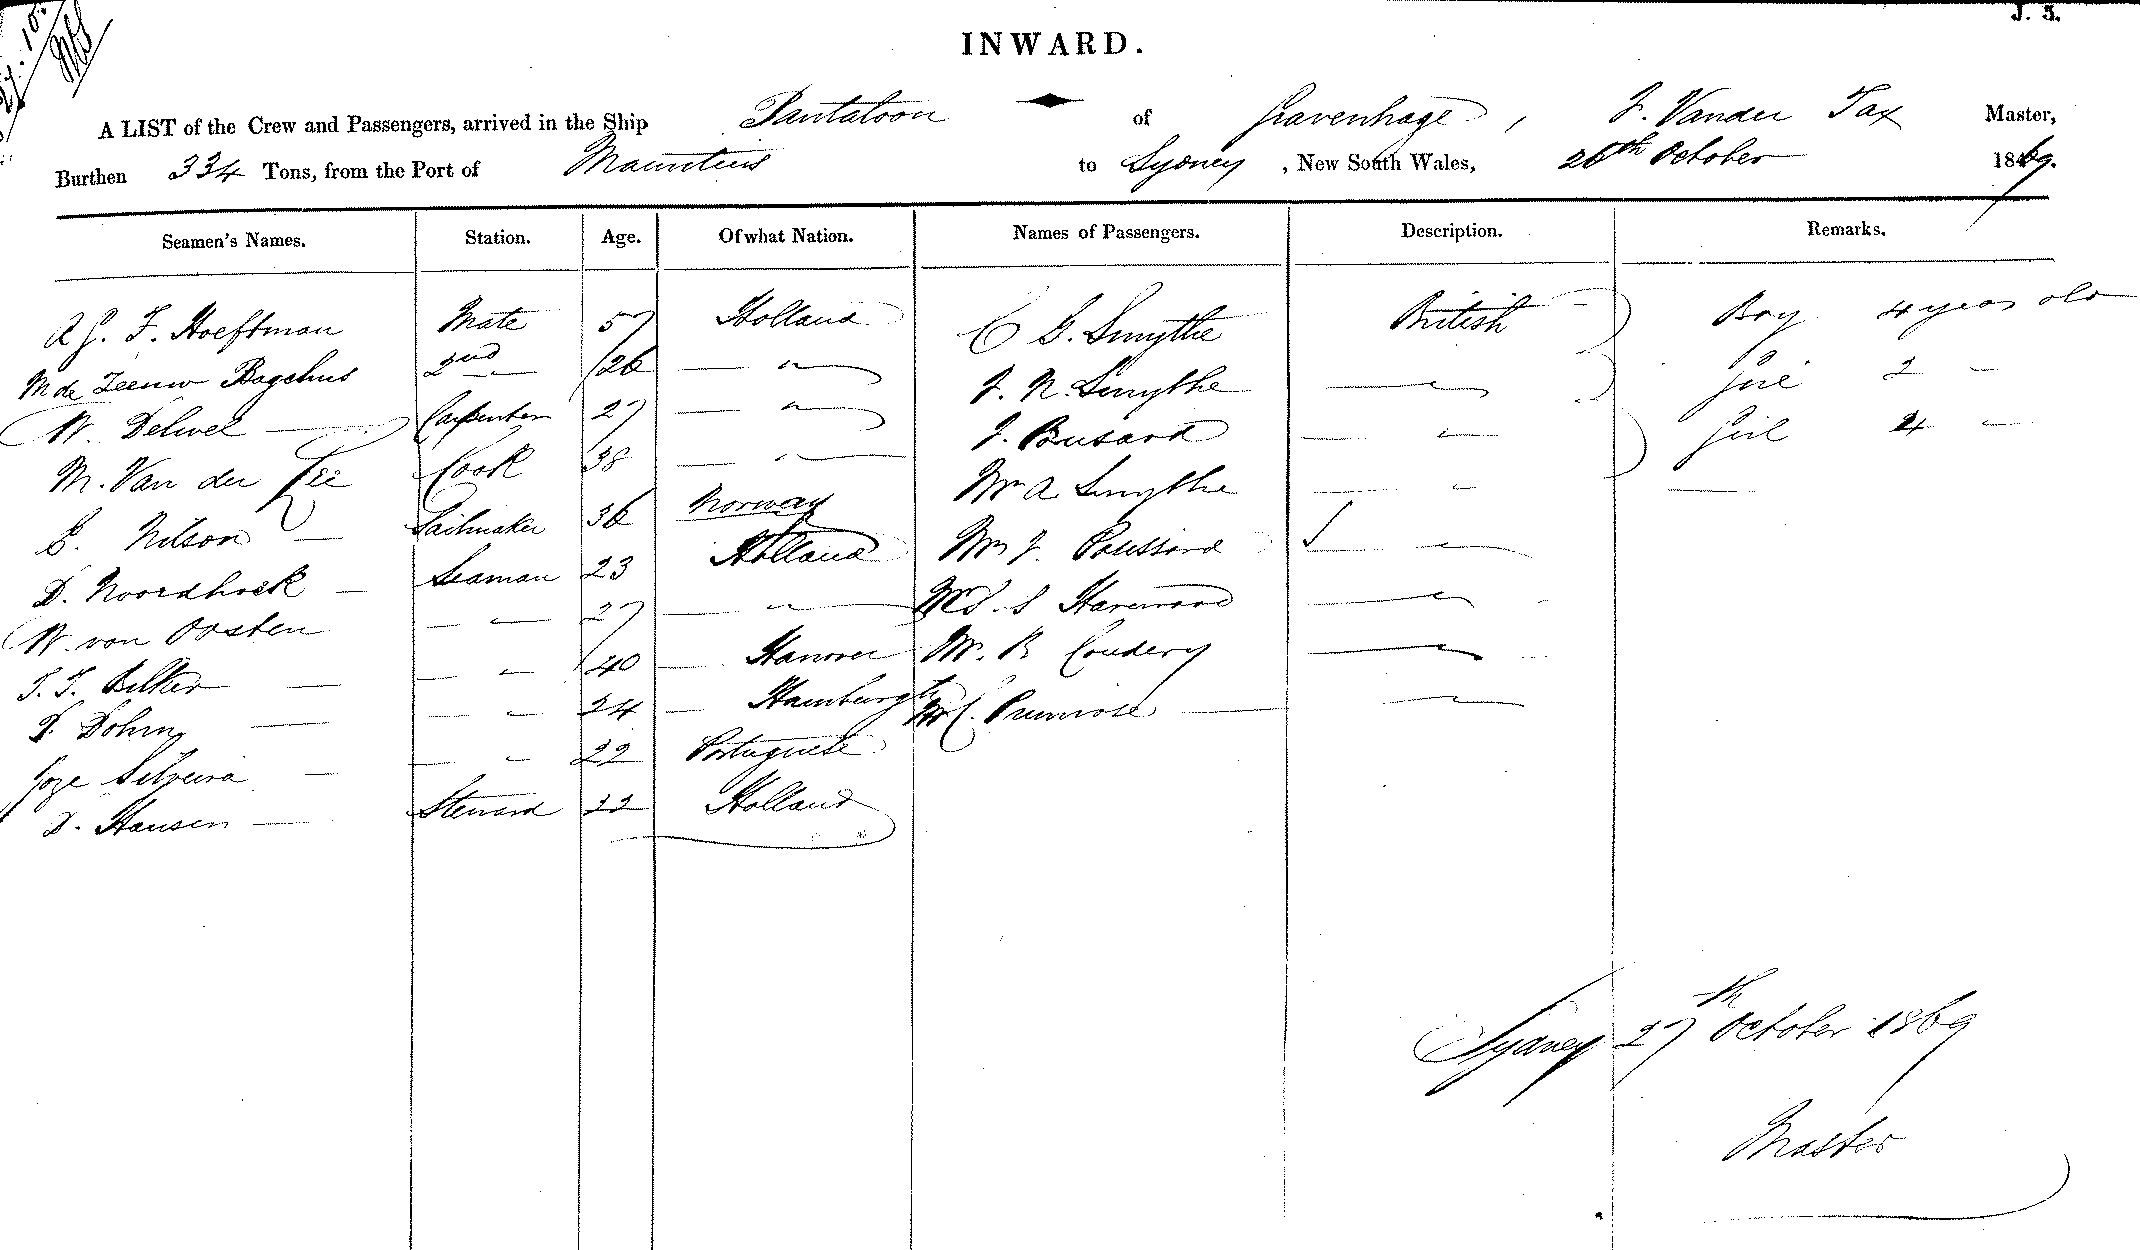 J. 5.
INWARD.
A LIST of the Crew and Passengers, arrived in the Ship Pantaloon of Gravenhage, J. Vander Tax Master,
Burthen 334 Tons, from the Port of Mauritius to Sydney, New South Wales, 26th October 1869.
Seamen's Names. Station. Age. Of what Nation. Names of Passengers. Description. Remarks.
A J. F. Hoeftman Mate 57 Holland C G. Smythe British Boy 4 years old
M de Zeeuw Bagehus 2nd " 26 — " J. N. Smythe — " Girl 2 —
W. Delwel — Carpenter 27 — " J. Busard — " Girl 4 —
M. Van der Zee Cook 38 — " Mrs A Smythe — " —
C. Nilson — Sailmaker 36 Norway Mrs J. Poussard — "
D. Noordhoek — Seaman 23 Holland Mrs. S Harwood — "
W. von Oosten — " 27 — " Mr. R Coudery — "
T. T. Bilker — — " 40 — Hanover Mr C. Primrose — "
D. Dohrn — — " 24 — Hamburgh
Joze Silveira — — " 22 Portuguese
D. Hansen — Steward 22 Holland
Sydney 27th October 1869
Master